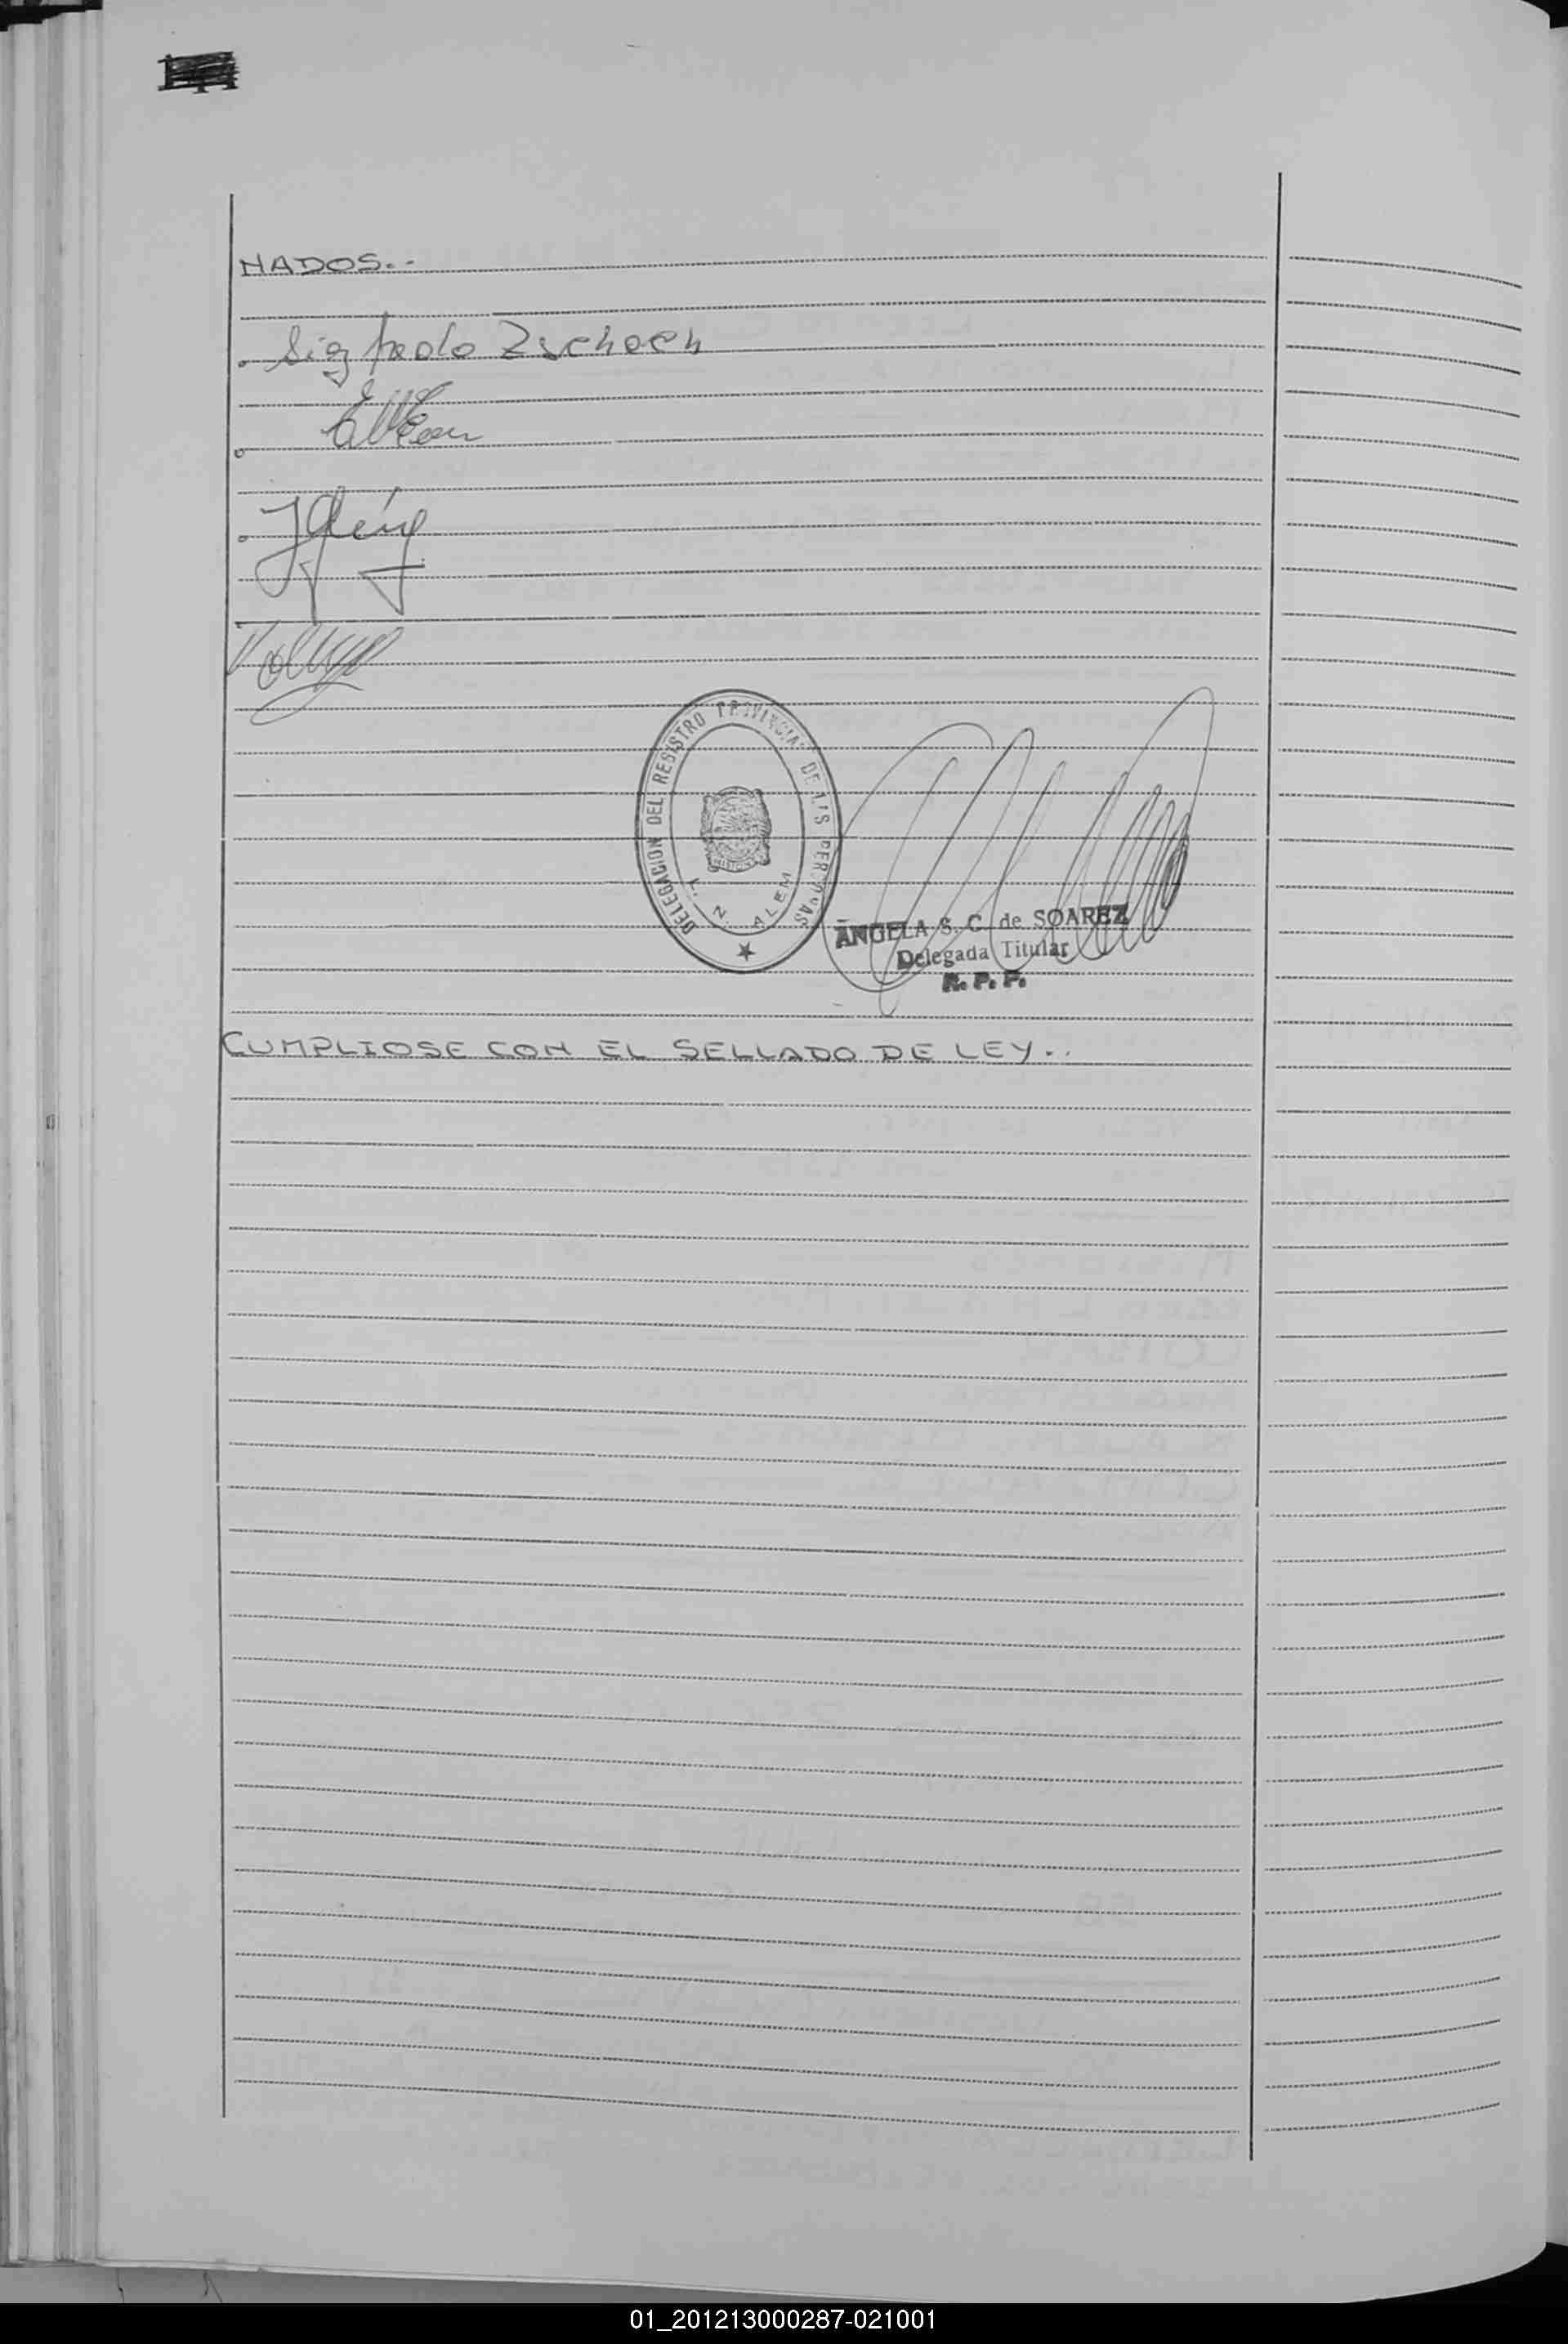 NADOS.-
Sigfredo Zschoch
DELEGACION DEL REGISTRO PROVINCIAL DE LAS PERSONAS
L. N. ALEM
ANGELA S. C. de SOAREZ
Delegada Titular
R. P. P.
CUMPLIOSE CON EL SELLADO DE LEY.-
01_201213000287-021001